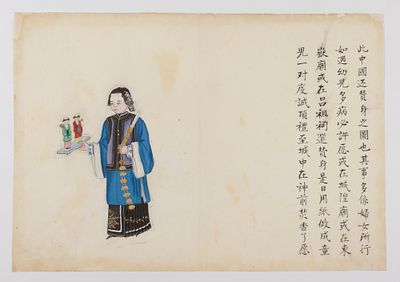 此中國还賃身之圖也其事多係婦女所行
如遇幼児多病必許愿或在城隍廟或在東
嶽廟或在吕祖祠還賃身是日用紙做成童
児一对虔誠頂禮至城中在神前焚香了愿